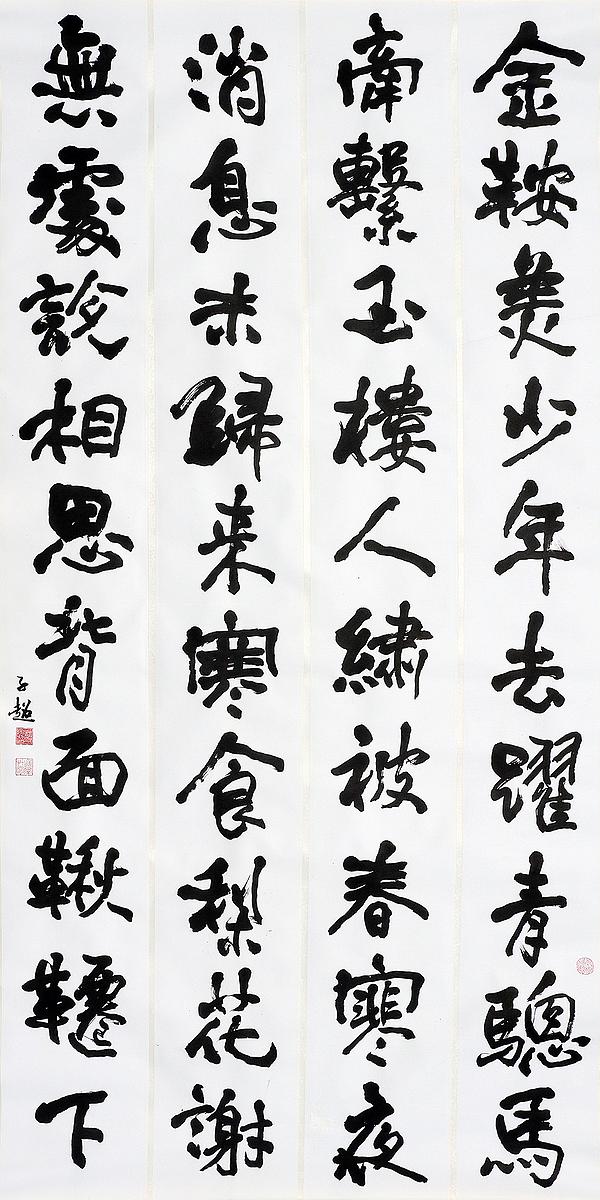 金鞍美少年去躍青驄馬
牽繫玉樓人繡被春寒夜
消息未歸来寒食梨花謝
無處說相思背面鞦韆下
子超